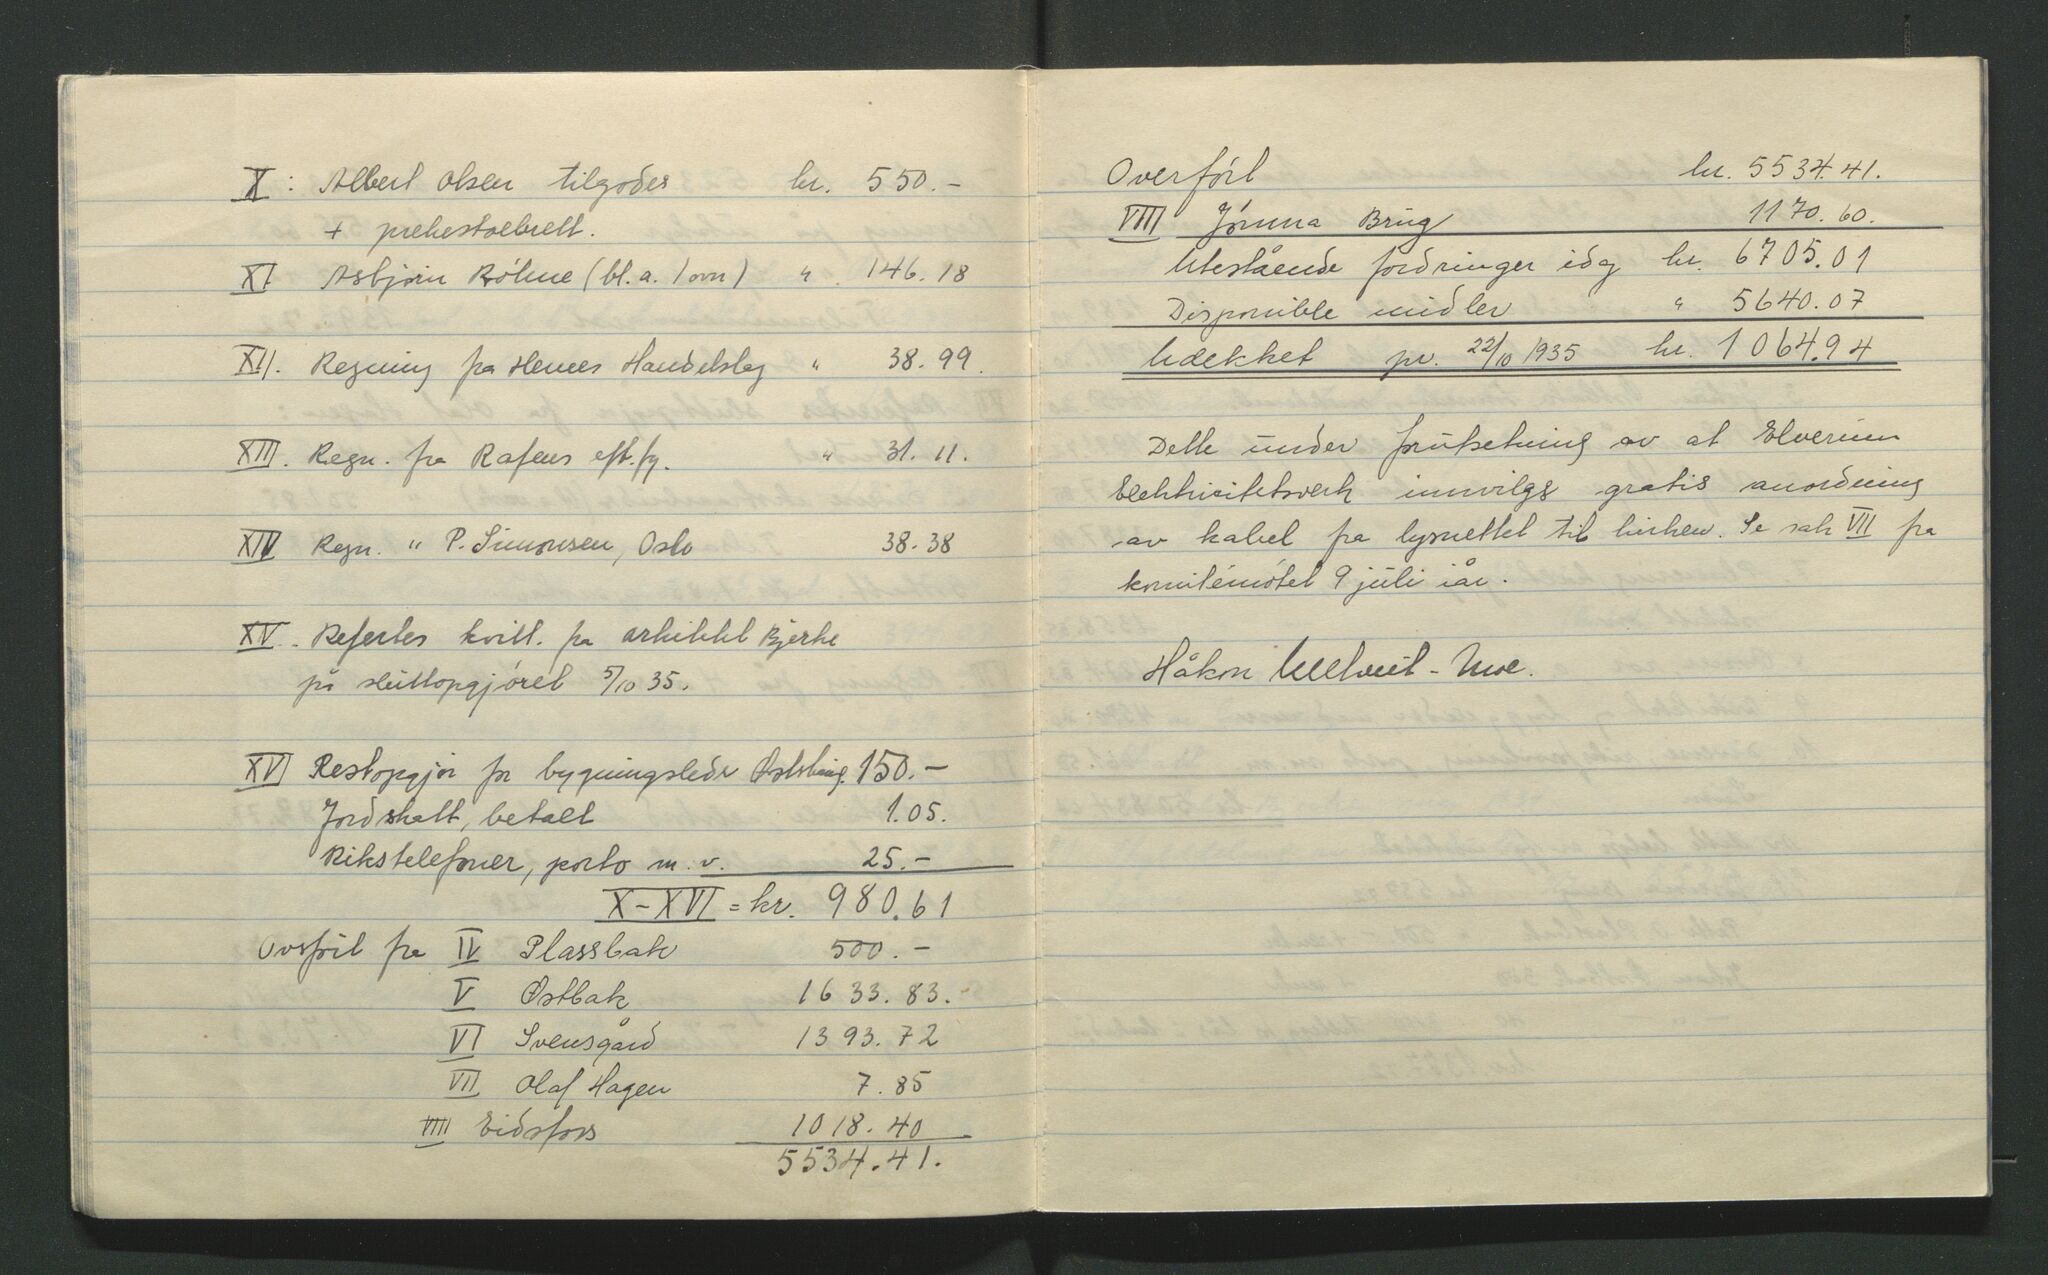 X : Albert Olsen tilgodes kr. 550.-
+ prekestolbrett.
XI Asbjørn Bóhne (bl. a. 1 ovn) " 146.18
XII. Regning fra Hernes Handelslag " 38.99.
XIII. Regn. fra Rafens eft.flg. " 31.11.
XIV Regn. " P. Simonsen, Oslo 38.38
XV. Refertes kvitt. fra arkitekt Bjerke
på sluttopgjöret 5/10 35.
XVI Restopgjør for bygningsleder Østbaug. 150.-
Jordskatt, betalt 1.05.
Rikstelefoner, porto m. v. 25.-
X-XVI = kr. 980.61
Overfört fra IV Plassbak 500.-
V Østbak 1633.83.
VI Svensgård 1393.72
VII Olaf Hagen 7.85
VIII Eidsfoss 1018.40
5534.41.
Overfört kr. 5534.41.
VIII Jómna Brug 1170.60.
Utestående fordringer idag kr. 6705.01
Disponible midler " 5640.07
Udekket pr. 22/10 1935 kr. 1064.94
Dette under forutsetning av at Elverum
Elektricitetsverk innvilgs gratis anordning
av kabel fra lysnettet til kirken. Se sak VII fra
komitémötet 9 juli iår.
Håkon